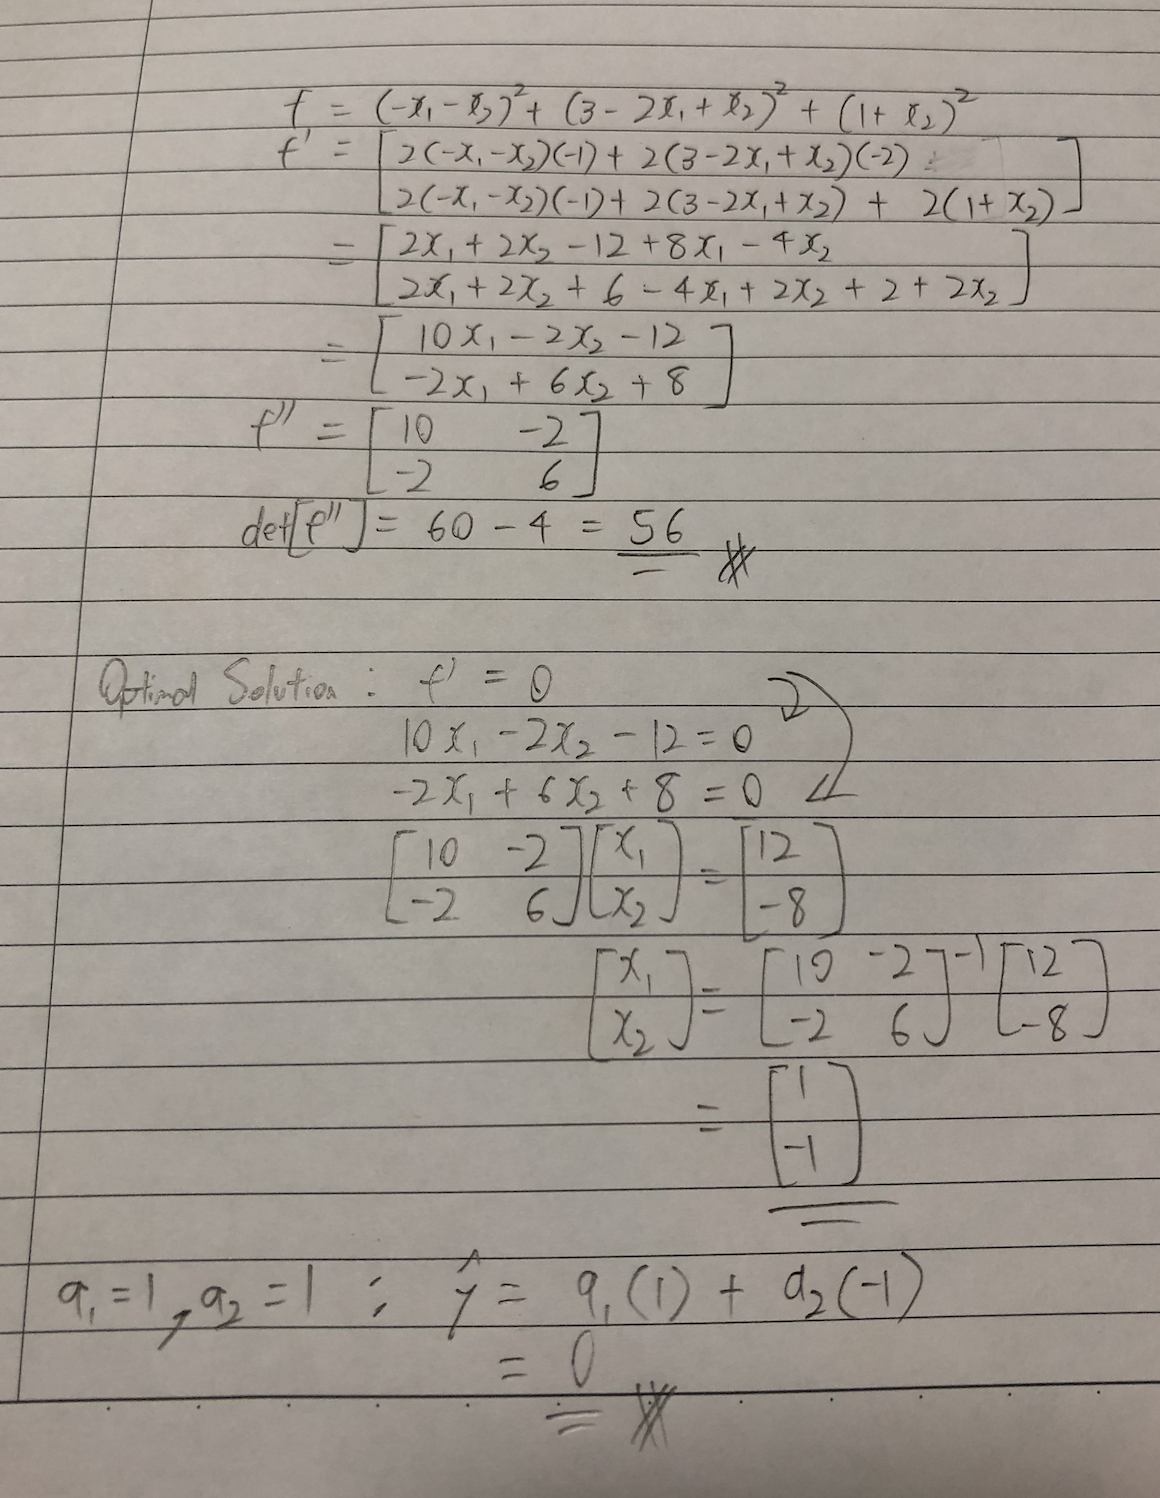 f = (-x₁ - x₂)² + (3 - 2x₁ + x₂)² + (1 + x₂)²
f' = [2(-x₁-x₂)(-1) + 2(3-2x₁+x₂)(-2)
2(-x₁-x₂)(-1) + 2(3-2x₁+x₂) + 2(1+x₂)]
= [2x₁ + 2x₂ - 12 + 8x₁ - 4x₂
2x₁ + 2x₂ + 6 - 4x₁ + 2x₂ + 2 + 2x₂]
= [10x₁ - 2x₂ - 12
-2x₁ + 6x₂ + 8]
f'' = [10 -2
-2 6]
det[f''] = 60 - 4 = 56
Optimal Solution : f' = 0
10x₁ - 2x₂ - 12 = 0
-2x₁ + 6x₂ + 8 = 0
[10 -2 [x₁ = [12
-2 6] x₂] -8]
[x₁ = [10 -2 ]⁻¹ [12
x₂] -2 6 -8]
= [1
-1]
a₁ = 1, a₂ = 1 ; ŷ = a₁(1) + a₂(-1)
= 0